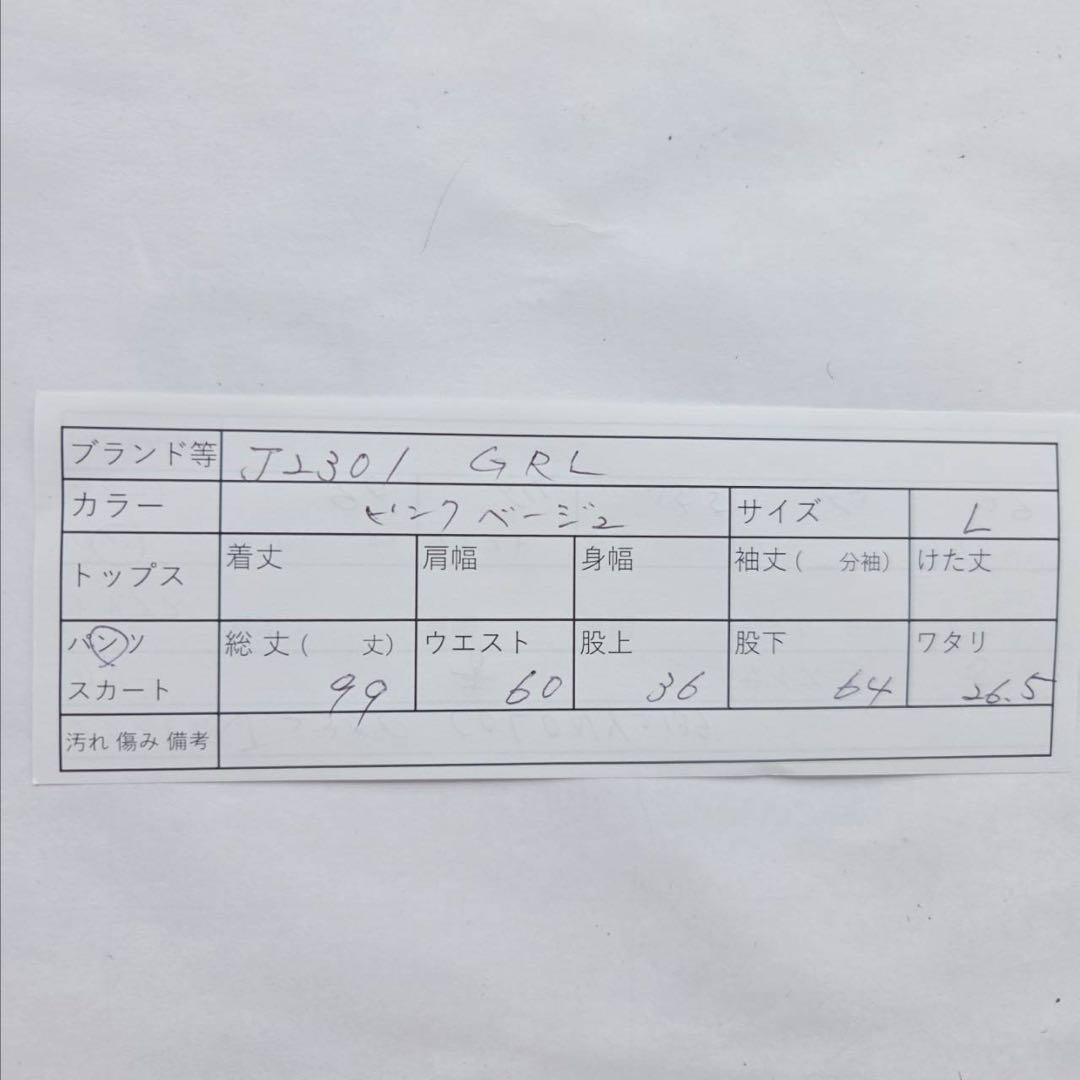 ブランド等 J2301 GRL
カラー ピンクベージュ サイズ L
トップス 着丈 肩幅 身幅 袖丈( 分袖) けた丈
パンツ 総丈( 丈) ウエスト 股上 股下 ワタリ
スカート 99 60 36 64 26.5
汚れ 傷み 備考